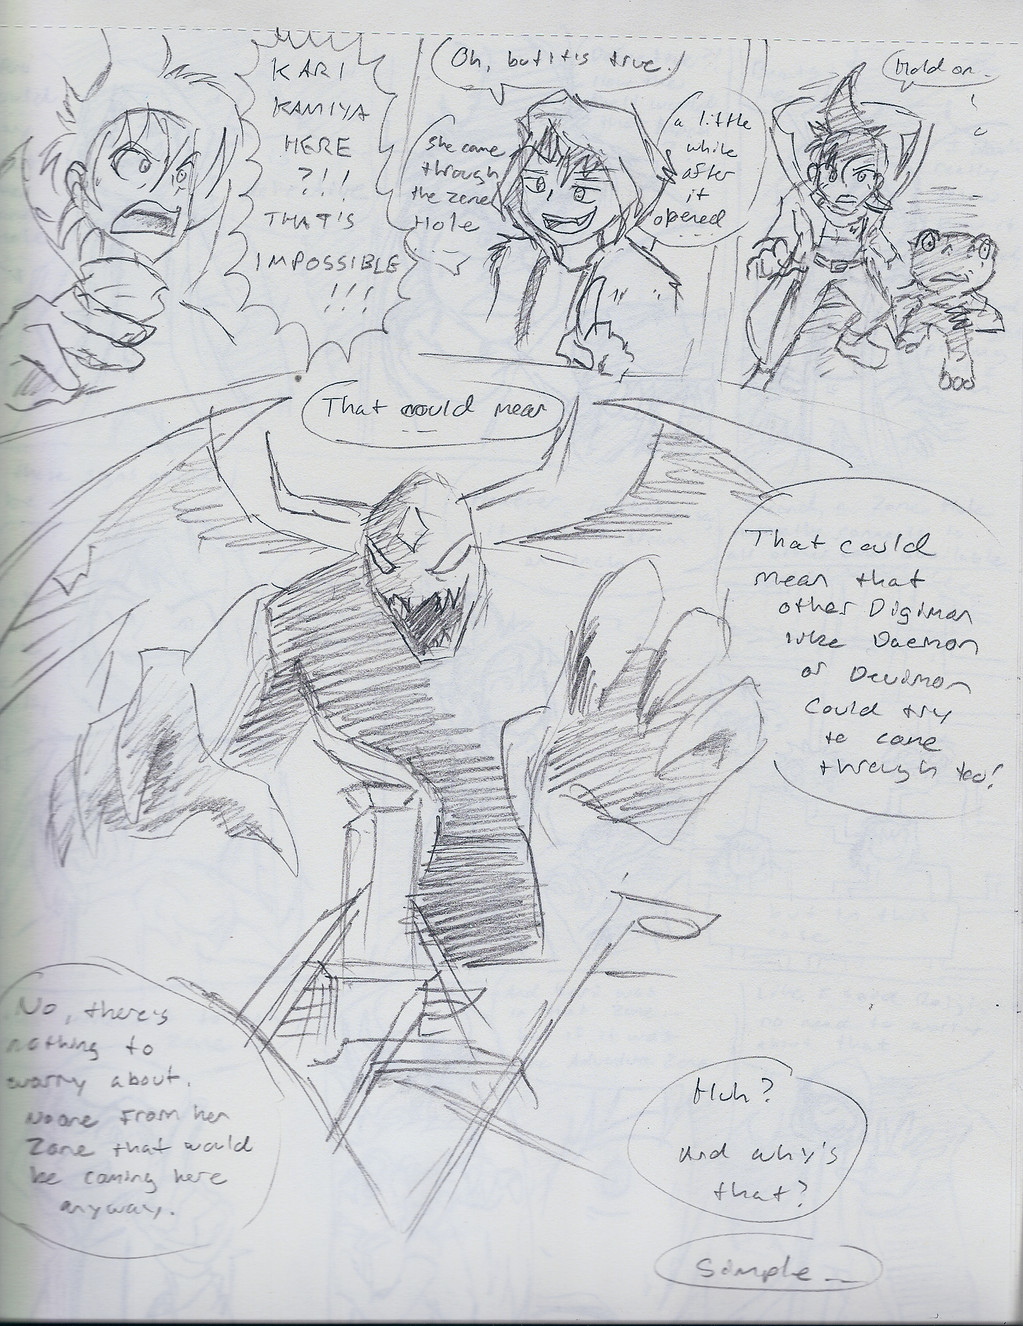 KARI
KAMIYA
HERE
?!!
THAT'S
IMPOSSIBLE
!!!
Oh, but it's true.
She came
through
the zone
Hole
a little
while
after
it
opened
Hold on.
That could mean
That could
mean that
other Digimon
like Daemon
or Devimon
Could try
to come
through too!
No, there's
nothing to
worry about.
No one from her
Zone that would
be coming here
anyway.
Huh?
And why's
that?
Simple